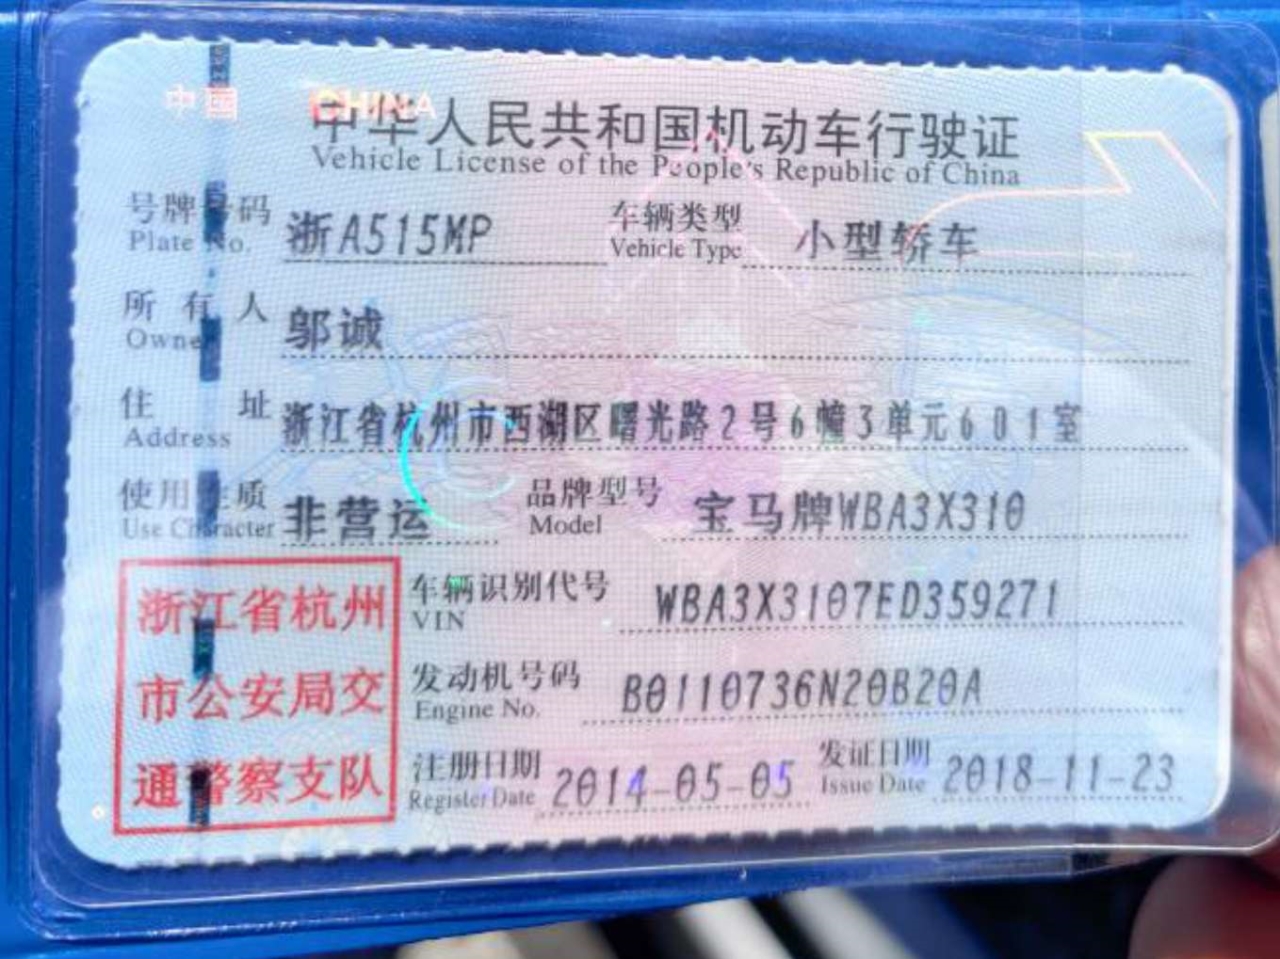 中国 CHINA
中华人民共和国机动车行驶证
Vehicle License of the People's Republic of China
号牌号码 浙A515MP 车辆类型 小型轿车
Plate No. Vehicle Type
所有人 邬诚
Owner
住址 浙江省杭州市西湖区曙光路2号6幢3单元601室
Address
使用性质 非营运 品牌型号 宝马牌WBA3X310
Use Character Model
车辆识别代号 WBA3X3107ED359271
VIN
发动机号码 B0110736N20B20A
Engine No.
注册日期 2014-05-05 发证日期 2018-11-23
Register Date Issue Date
浙江省杭州
市公安局交
通警察支队